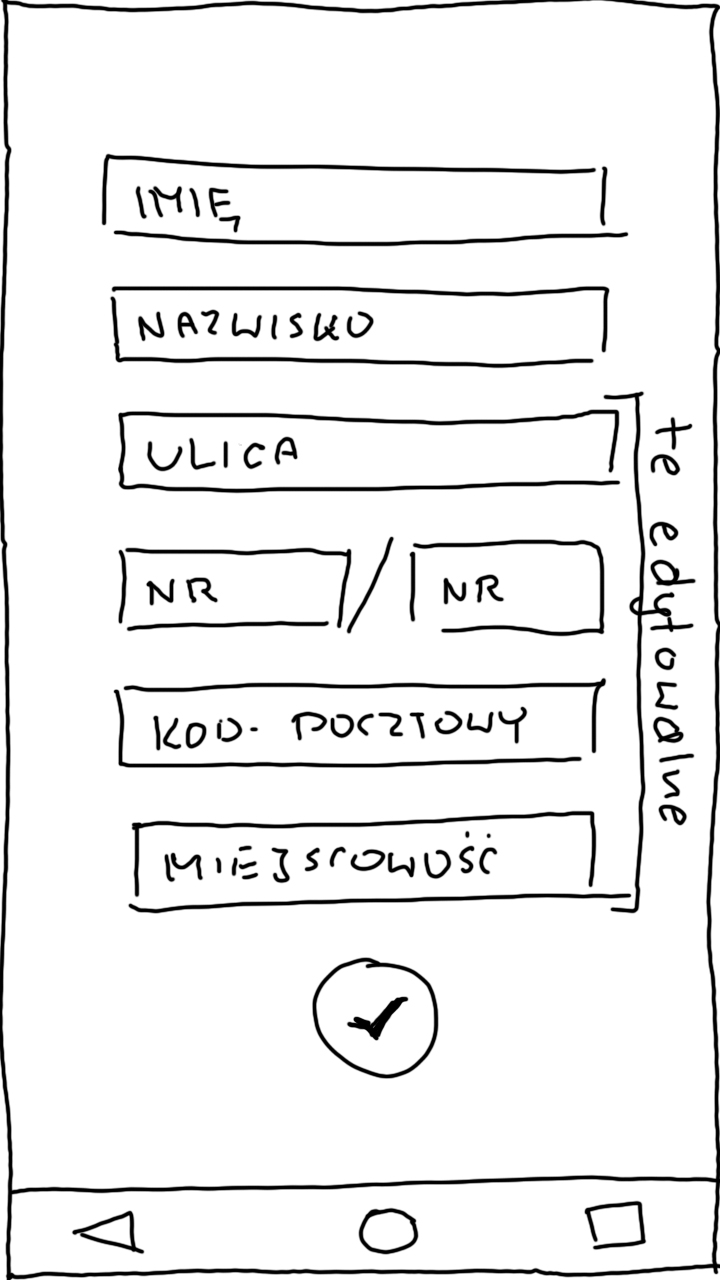 IMIĘ
NAZWISKO
ULICA
NR / NR
KOD. POCZTOWY
MIEJSCOWOŚĆ
te edytowalne